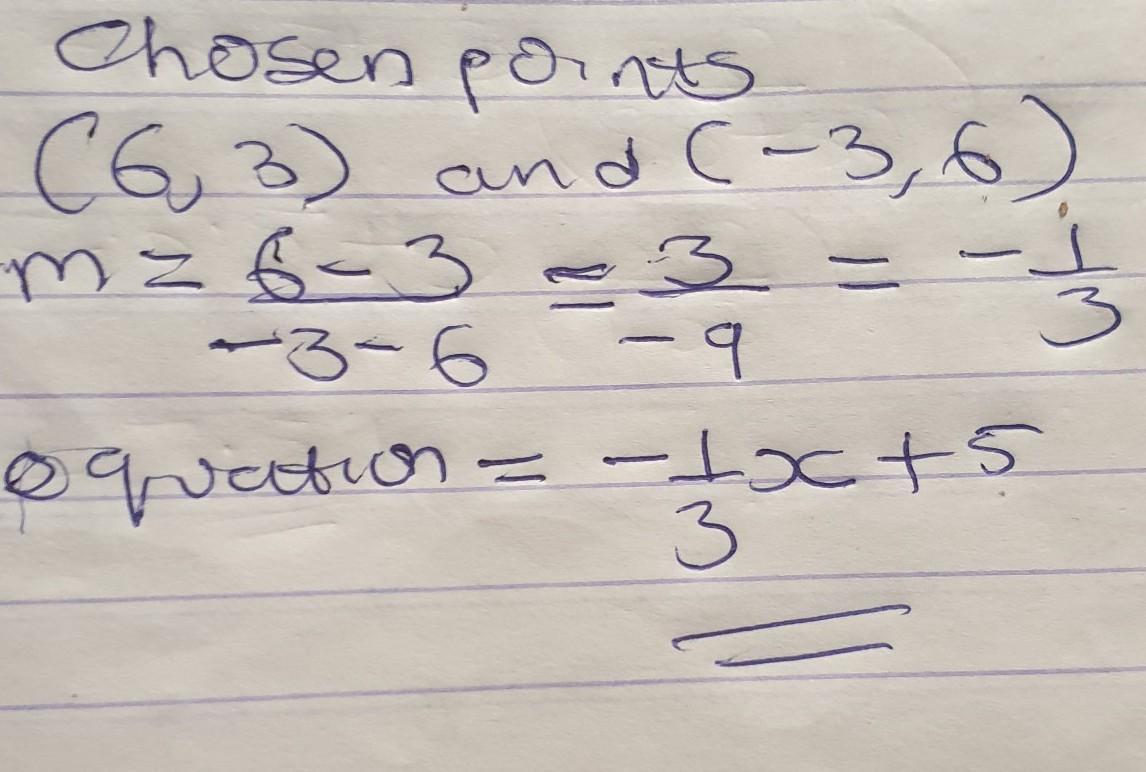 Chosen points
(6, 3) and (-3, 6)
m = 6 - 3 / -3 - 6 = 3 / -9 = - 1/3
equation = - 1/3 x + 5